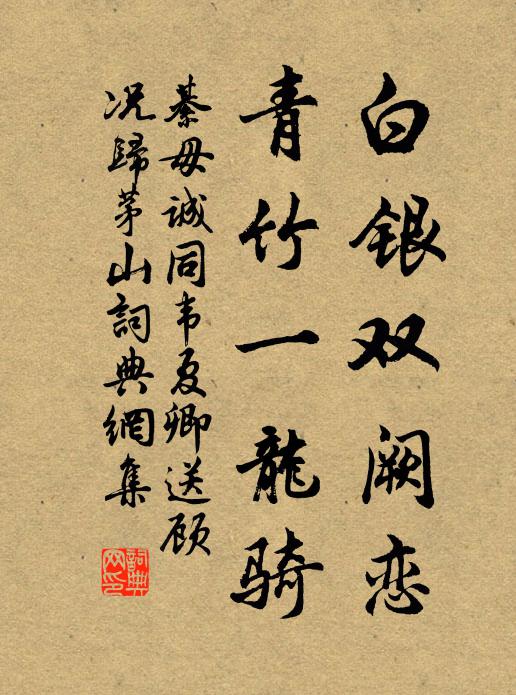 白银双阙恋
青竹一龍骑
綦毋诚同韦夏卿送顾
况歸茅山詞典網集
詞典網印